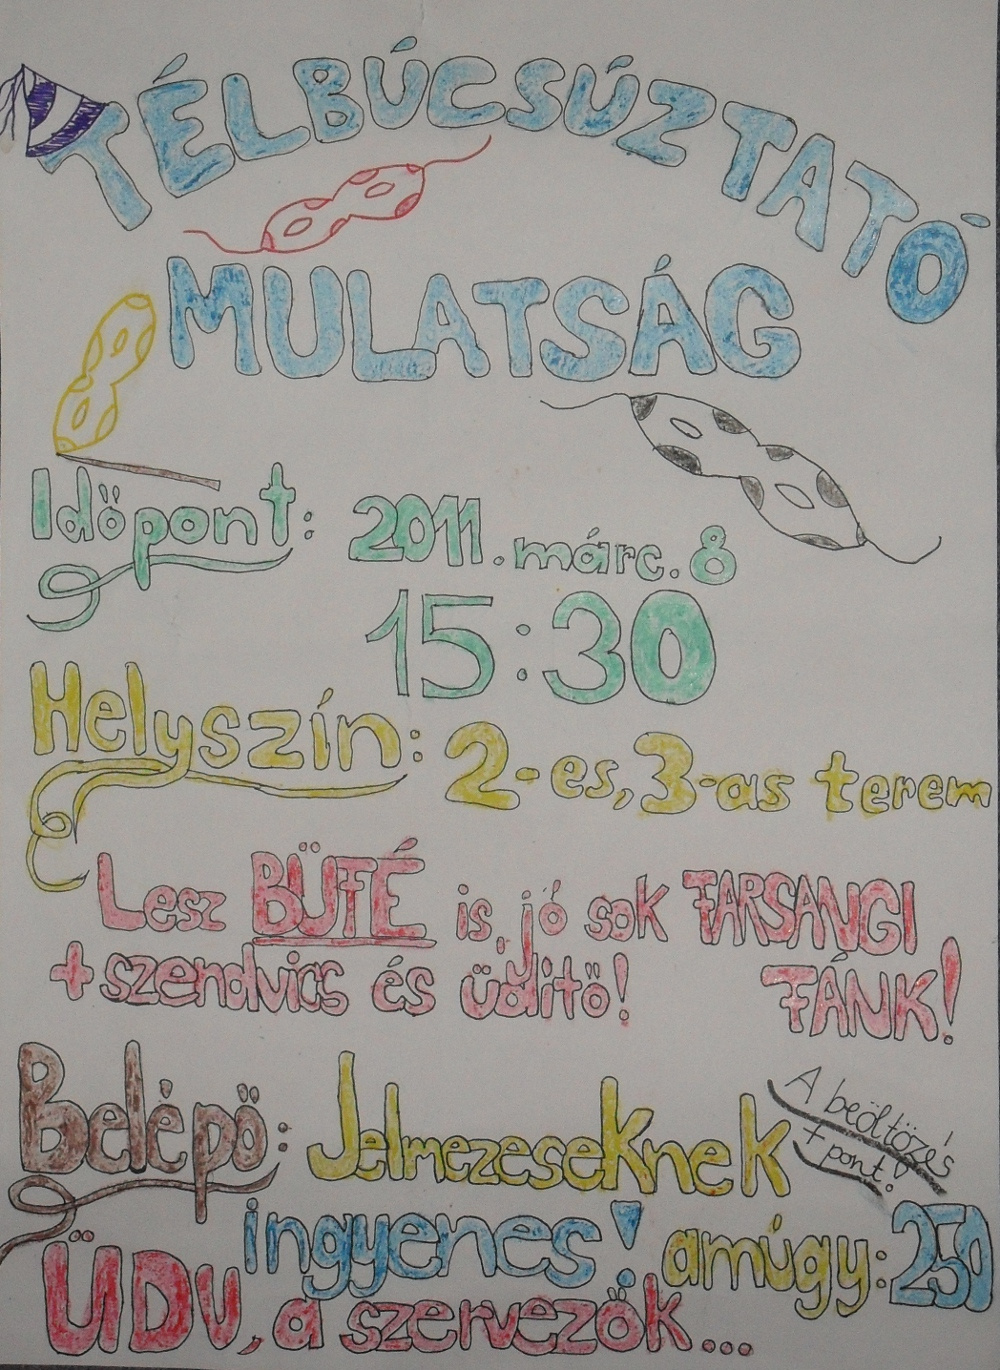 TÉLBÚCSÚZTATÓ
MULATSÁG
Időpont: 2011. márc. 8
15:30
Helyszín: 2-es, 3-as terem
Lesz BÜFÉ is, jó sok FARSANGI
+ szendvics és üdítő! FÁNK!
Belépő: Jelmezeseknek
A beöltözés
+ pont!
ingyenes! amúgy: 250
ÜDV, a szervezők...